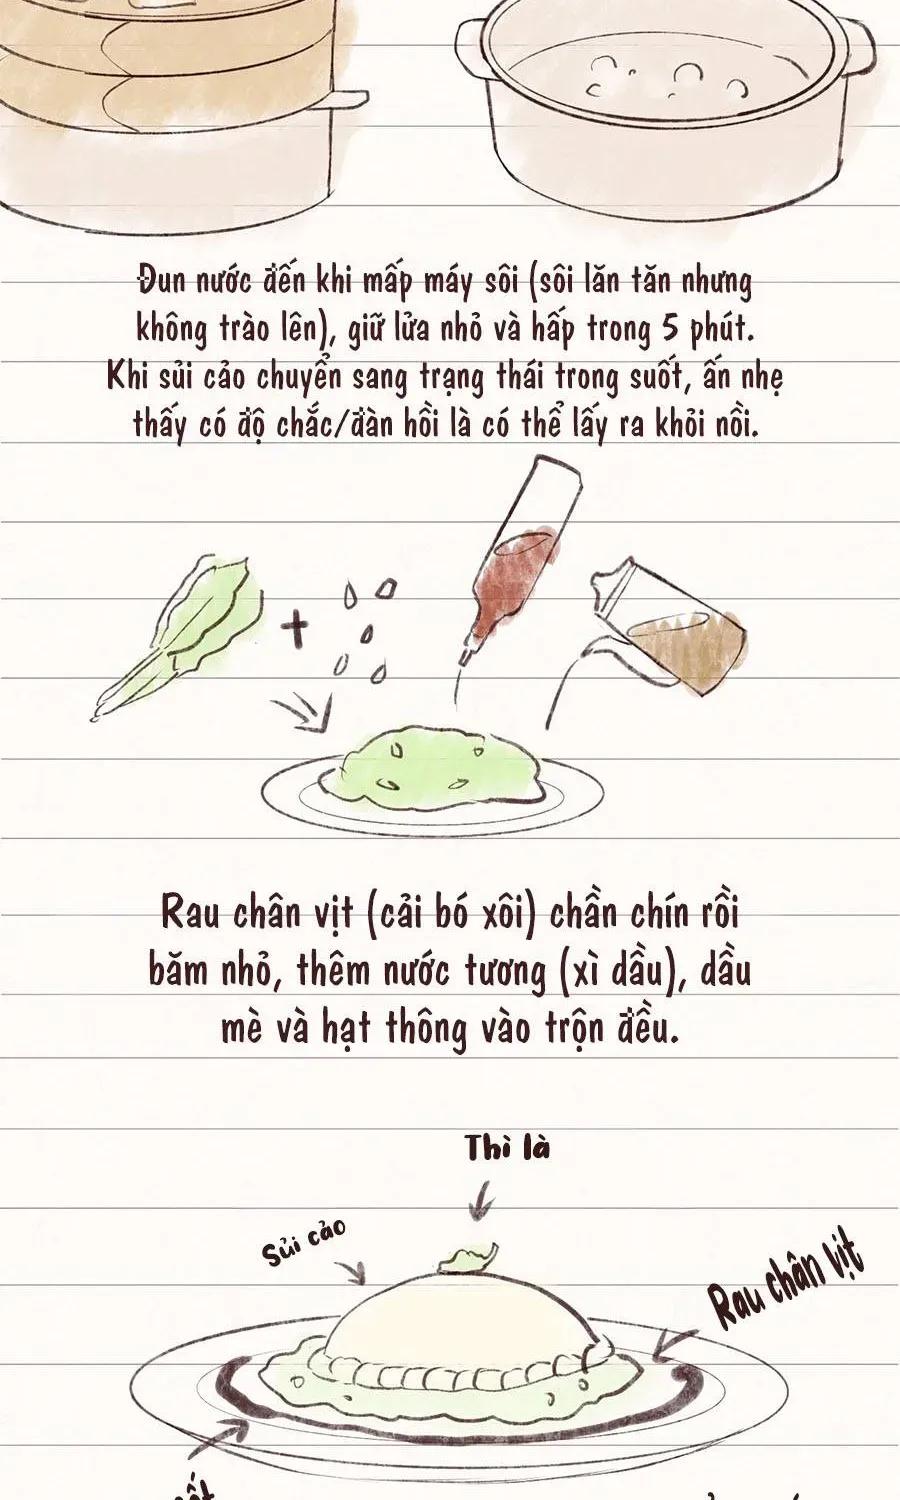 Đun nước đến khi mấp máy sôi (sôi lăn tăn nhưng
không trào lên), giữ lửa nhỏ và hấp trong 5 phút.
Khi sủi cảo chuyển sang trạng thái trong suốt, ấn nhẹ
thấy có độ chắc/đàn hồi là có thể lấy ra khỏi nồi.
+
Rau chân vịt (cải bó xôi) chần chín rồi
băm nhỏ, thêm nước tương (xì dầu), dầu
mè và hạt thông vào trộn đều.
Thì là
Sủi cảo
Rau chân vịt